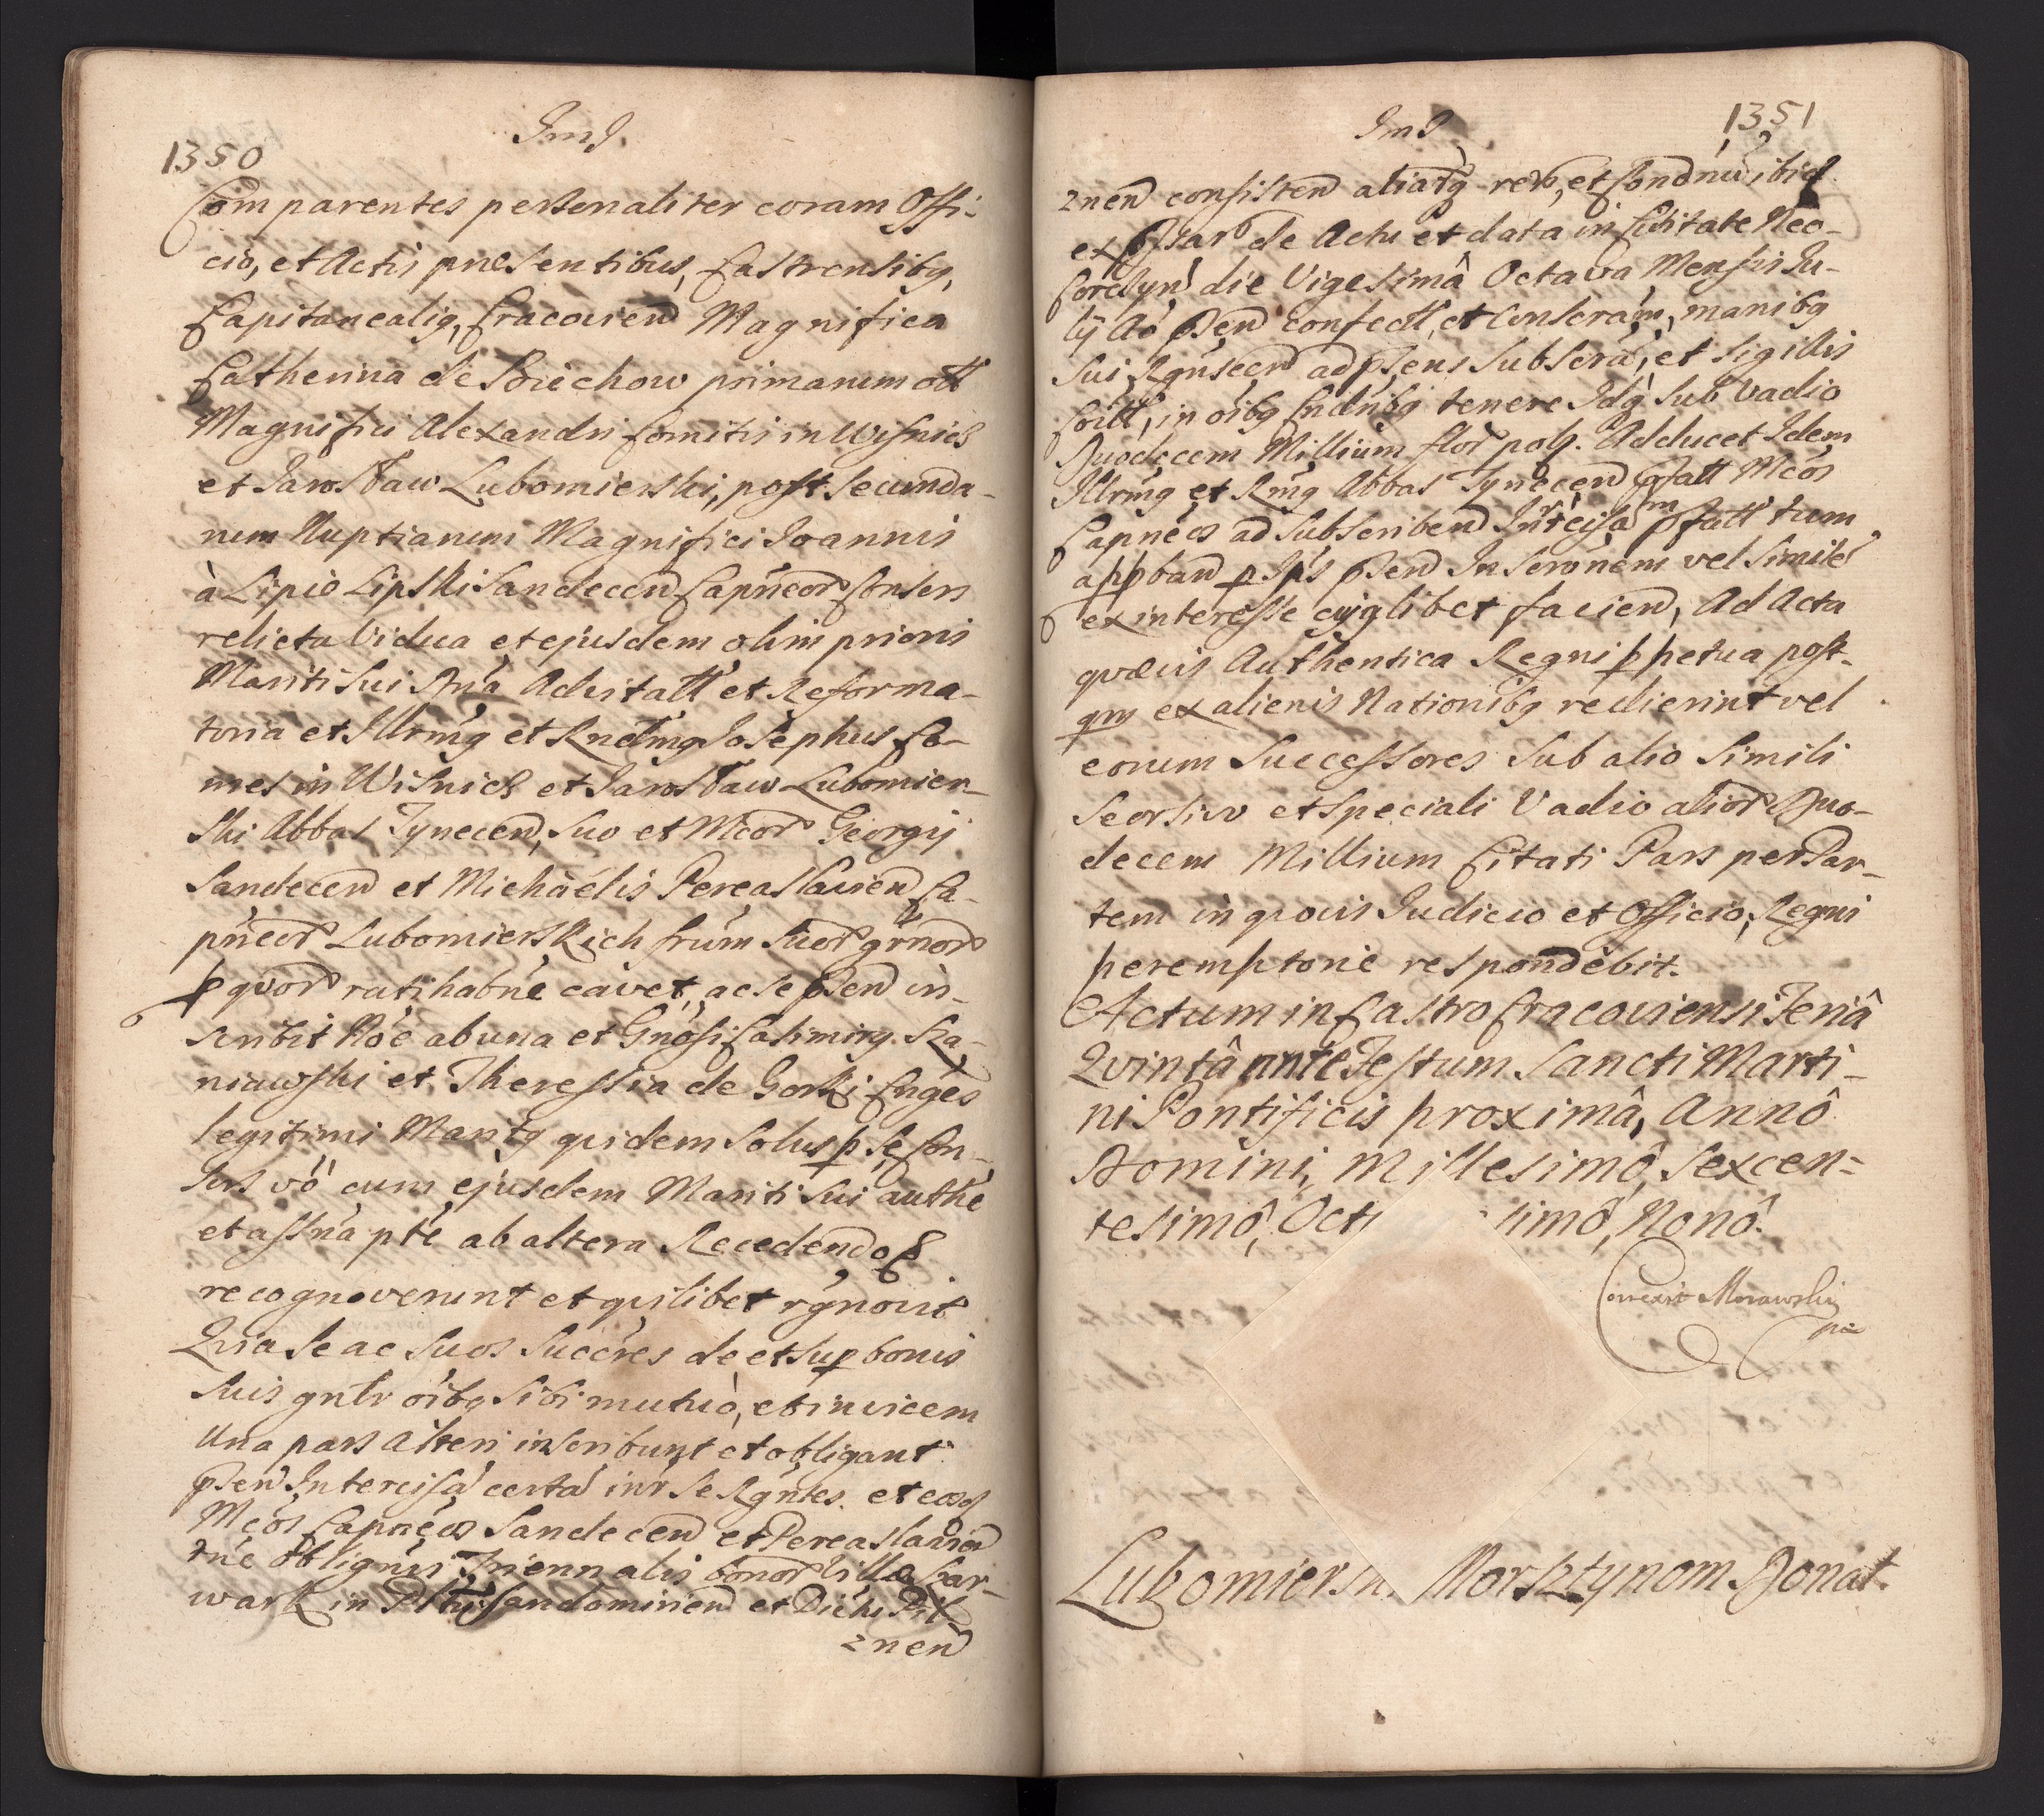 1350
ImJ.
Comparentes personaliter coram Offi-
cio, et Actis præsentibus, Castrensibq,
Capitanealiq, Cracovien Magnifica
Catherina de Boiechow primarum ott
Magnifici Alexandri Comitis in Wisnicz
et Jarosław Lubomierski, post secunda-
rum Nuptiarum Magnifici Joannis
à Lipie Lipski Sandecen Capneor Consers
relicta Vidua et ejusdem olim prioris
Mariti sui Bna Advitatt et Reforma-
toria et Illrmq et Rndmq Josephus Co-
mes in Wisnicz et Jarosław Lubomier-
ski Abbas Tynecen, suo et Mcor Georgij
Sandecen et Michaelis Pereaslavien Ca-
pneor Lubomierskich frum suor grnor
p qvor ratihabne cavet, ac se psen in-
scribit Noe ab una et Gnosi Casimirq Sza-
niawski et Theressia de Gorki Cnges
legitimi Maritq quidem solus p se Con-
jux vo cum ejusdem Mariti sui authe
et assna pte ab altera Recedendo &
recognoverunt et qvilibet rgnovit
Qvia se ac suos succres de et sup bonis
suis gnlr oibq sibi mutuò, et invicem
Una pars alteri inscribunt et obligant
psen Intercisa certa intr se Rgntes. et eosd
Mcos Capneos Sandecen et Pereaslavien
rne Oblignis Triennalis bonor Villæ Kar-
wark in Pltu Sandomirien et Dictu Pil-
znen
ImJ
1351
znen consisten aliarq rer, et Condnu ibid
ex psar de Actu et data in Civitate Neo-
Corczyn die Vigesimâ Octava Mensis Ju-
lij Ao psen confectt, et Conscram, manibq
sui Rgnscen ad psens subscra, et sigillis
coitt, in oibq Cndnibq tenere Idq sub vadio
Duodecem Millium flor pol. Adducet Idem
Illrmq et Rmq Abbas Tynecen psatt Mcos
Capneos ad subscriben Intrcisa psatt tum
appban p Ips psen Inscronem vel simile
ex interesse cujqlibet facien, Ad Acta
qvævis Authentica Regni ppetua post-
qm ex alienis Nationibq redierint vel
eorum Successores sub alio simili
seorsiv et speciali Vadio alior Duo-
decem Millium Citati Pars per Par-
tem in qvovis Judicio et Officio, Regni
peremptoriè respondebit.
Actum in Castro Cracoviensi Feriâ
Qvintâ ante Festum Sancti Marti-
ni Pontificis proximâ, Annô
Domini, Millesimô, Sexcen=
tesimô, Oct simô, Nonô.
Correxit Morawski
pa
Lubomiersk Morsztynom Donat.